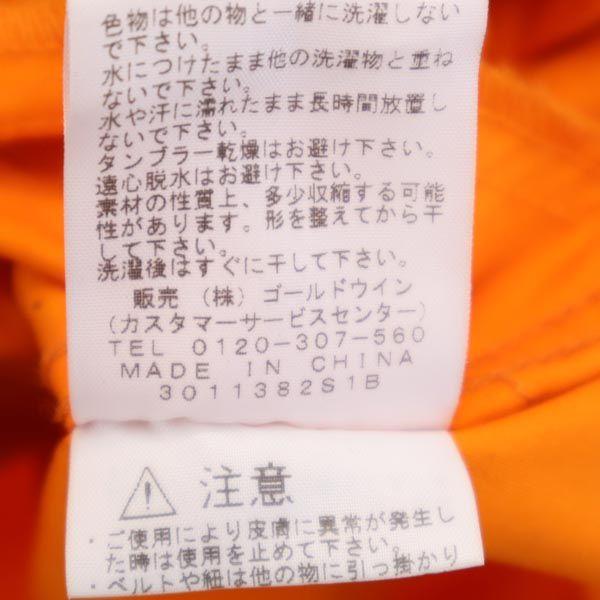 色物は他の物と一緒に洗濯しない
で下さい。
水につけたまま他の洗濯物と重ね
ないで下さい。
水や汗に濡れたまま長時間放置し
ないで下さい。
タンブラー乾燥はお避け下さい。
遠心脱水はお避け下さい。
素材の性質上、多少収縮する可能
性があります。形を整えてから干
して下さい。
洗濯後はすぐに干して下さい。
販売 (株) ゴールドウイン
(カスタマーサービスセンター)
TEL 0120-307-560
MADE IN CHINA
3011382S1B
注意
・ご使用により皮膚に異常が発生し
た時は使用を止めて下さい。
・ベルトや紐は他の物に引っ掛かり